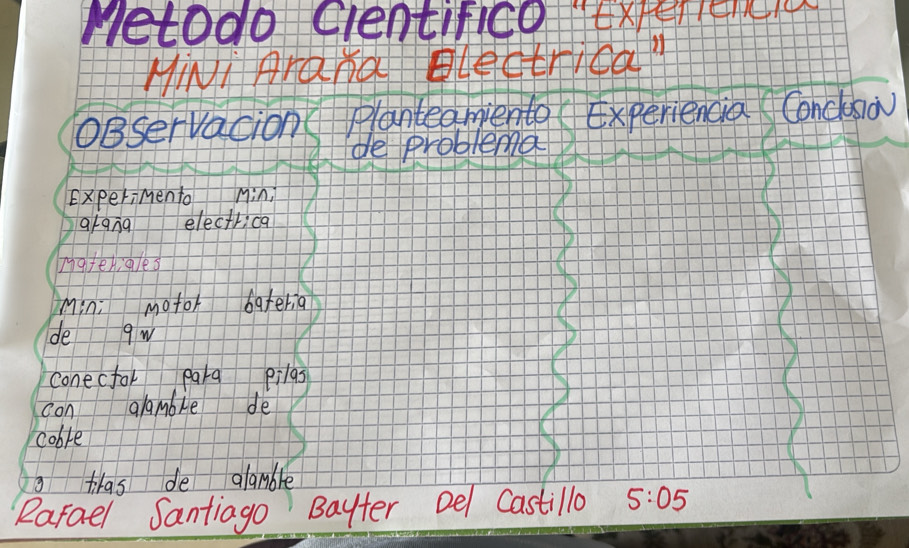 Metodo Cientifico "Experiencia
MiNi Araña Electrica"
OBServacion Planteamiento de problema Experiencia Conclusion
Experimento Mini
araña electrica
Materiales
Mini motor bateria
de 9w
conector para pilas
con alambre de
cobre
3 tiras de alambre
Rafael Santiago Bayter Del Castillo 5:05